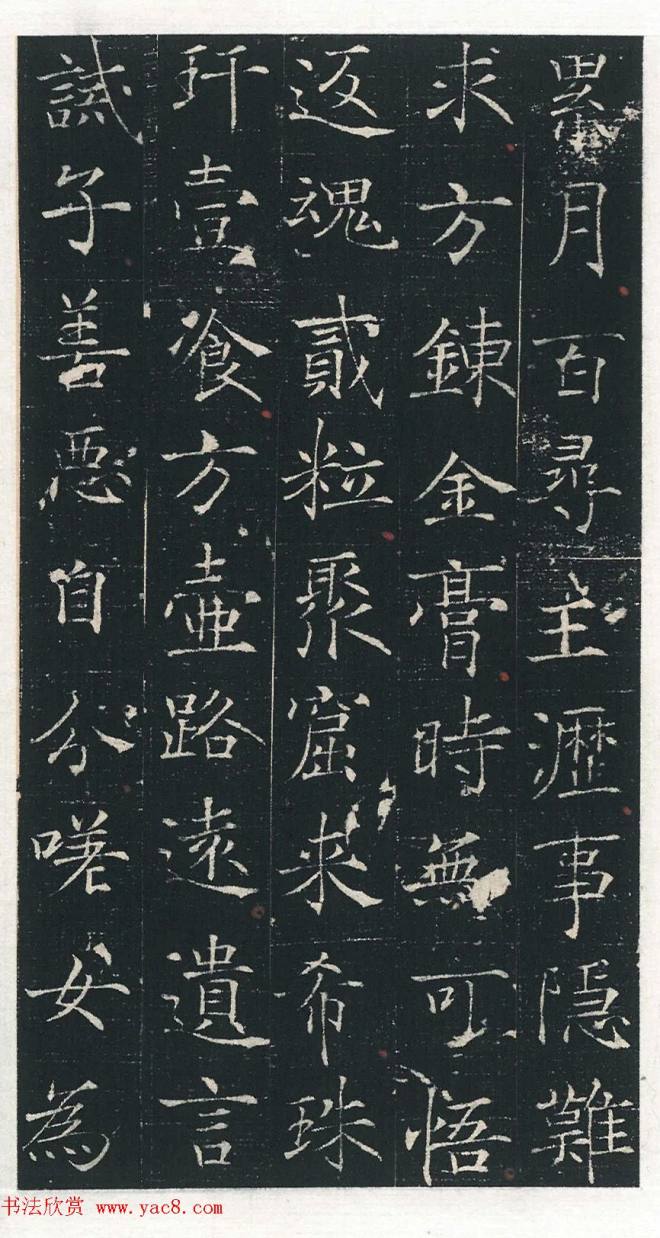 累月百尋主瀝事隱難
求方鍊金膏時無可悟
返魂貳粒聚窟来希珠
玕壹飡方壷路遠遺言
誡子善惡自分喏女為
书法欣赏 www.yac8.com